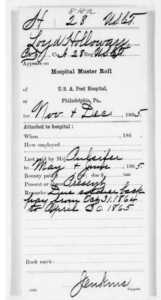 H 28 U.S.C.T.
Loyd Holloway
Co. H 28 U.S.C.T.
Appears on
Hospital Muster Roll
of
U. S. A. Post Hospital,
Philadelphia, Pa.,
for Nov & Dec, 1865
Attached to hospital:
When, 186
How employed
Last paid by Maj.
to May & June, 1865
Bounty paid
due $
Present or absent Present
Remarks: Due soldier back
pay from Oct 31, 1864
to April 30, 1865
Book mark:
Jenkins